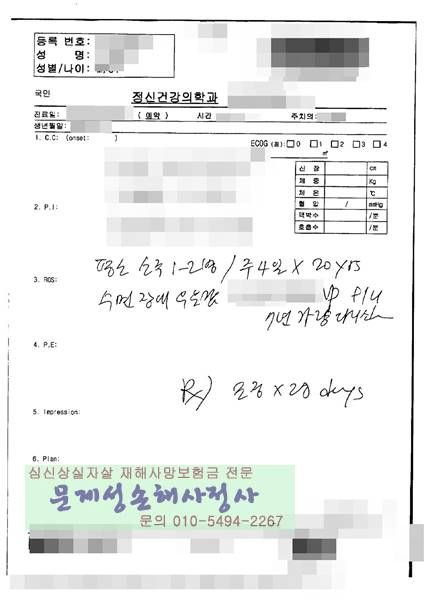 등록 번호:
성 명:
성별/나이:
국민
정신건강의학과
진료일: ( 예약 ) 시간 주치의:
생년월일:
1. C.C: (onset: ) ECOG (홈): □0 □1 □2 □3 □4
㎡
신 장 cm
체 중 Kg
체 온 ℃
혈 압 / mmHg
맥박수 /분
호흡수 /분
2. P.I:
평소 소주 1-2병 / 주 4일 X 20 yrs
3. ROS:
수면장애 우울감 f/u
7년 가량
4. P.E:
Rx) X days
5. Impression:
6. Plan:
심신상실자살 재해사망보험금 전문
문제성손해사정사
문의 010-5494-2267